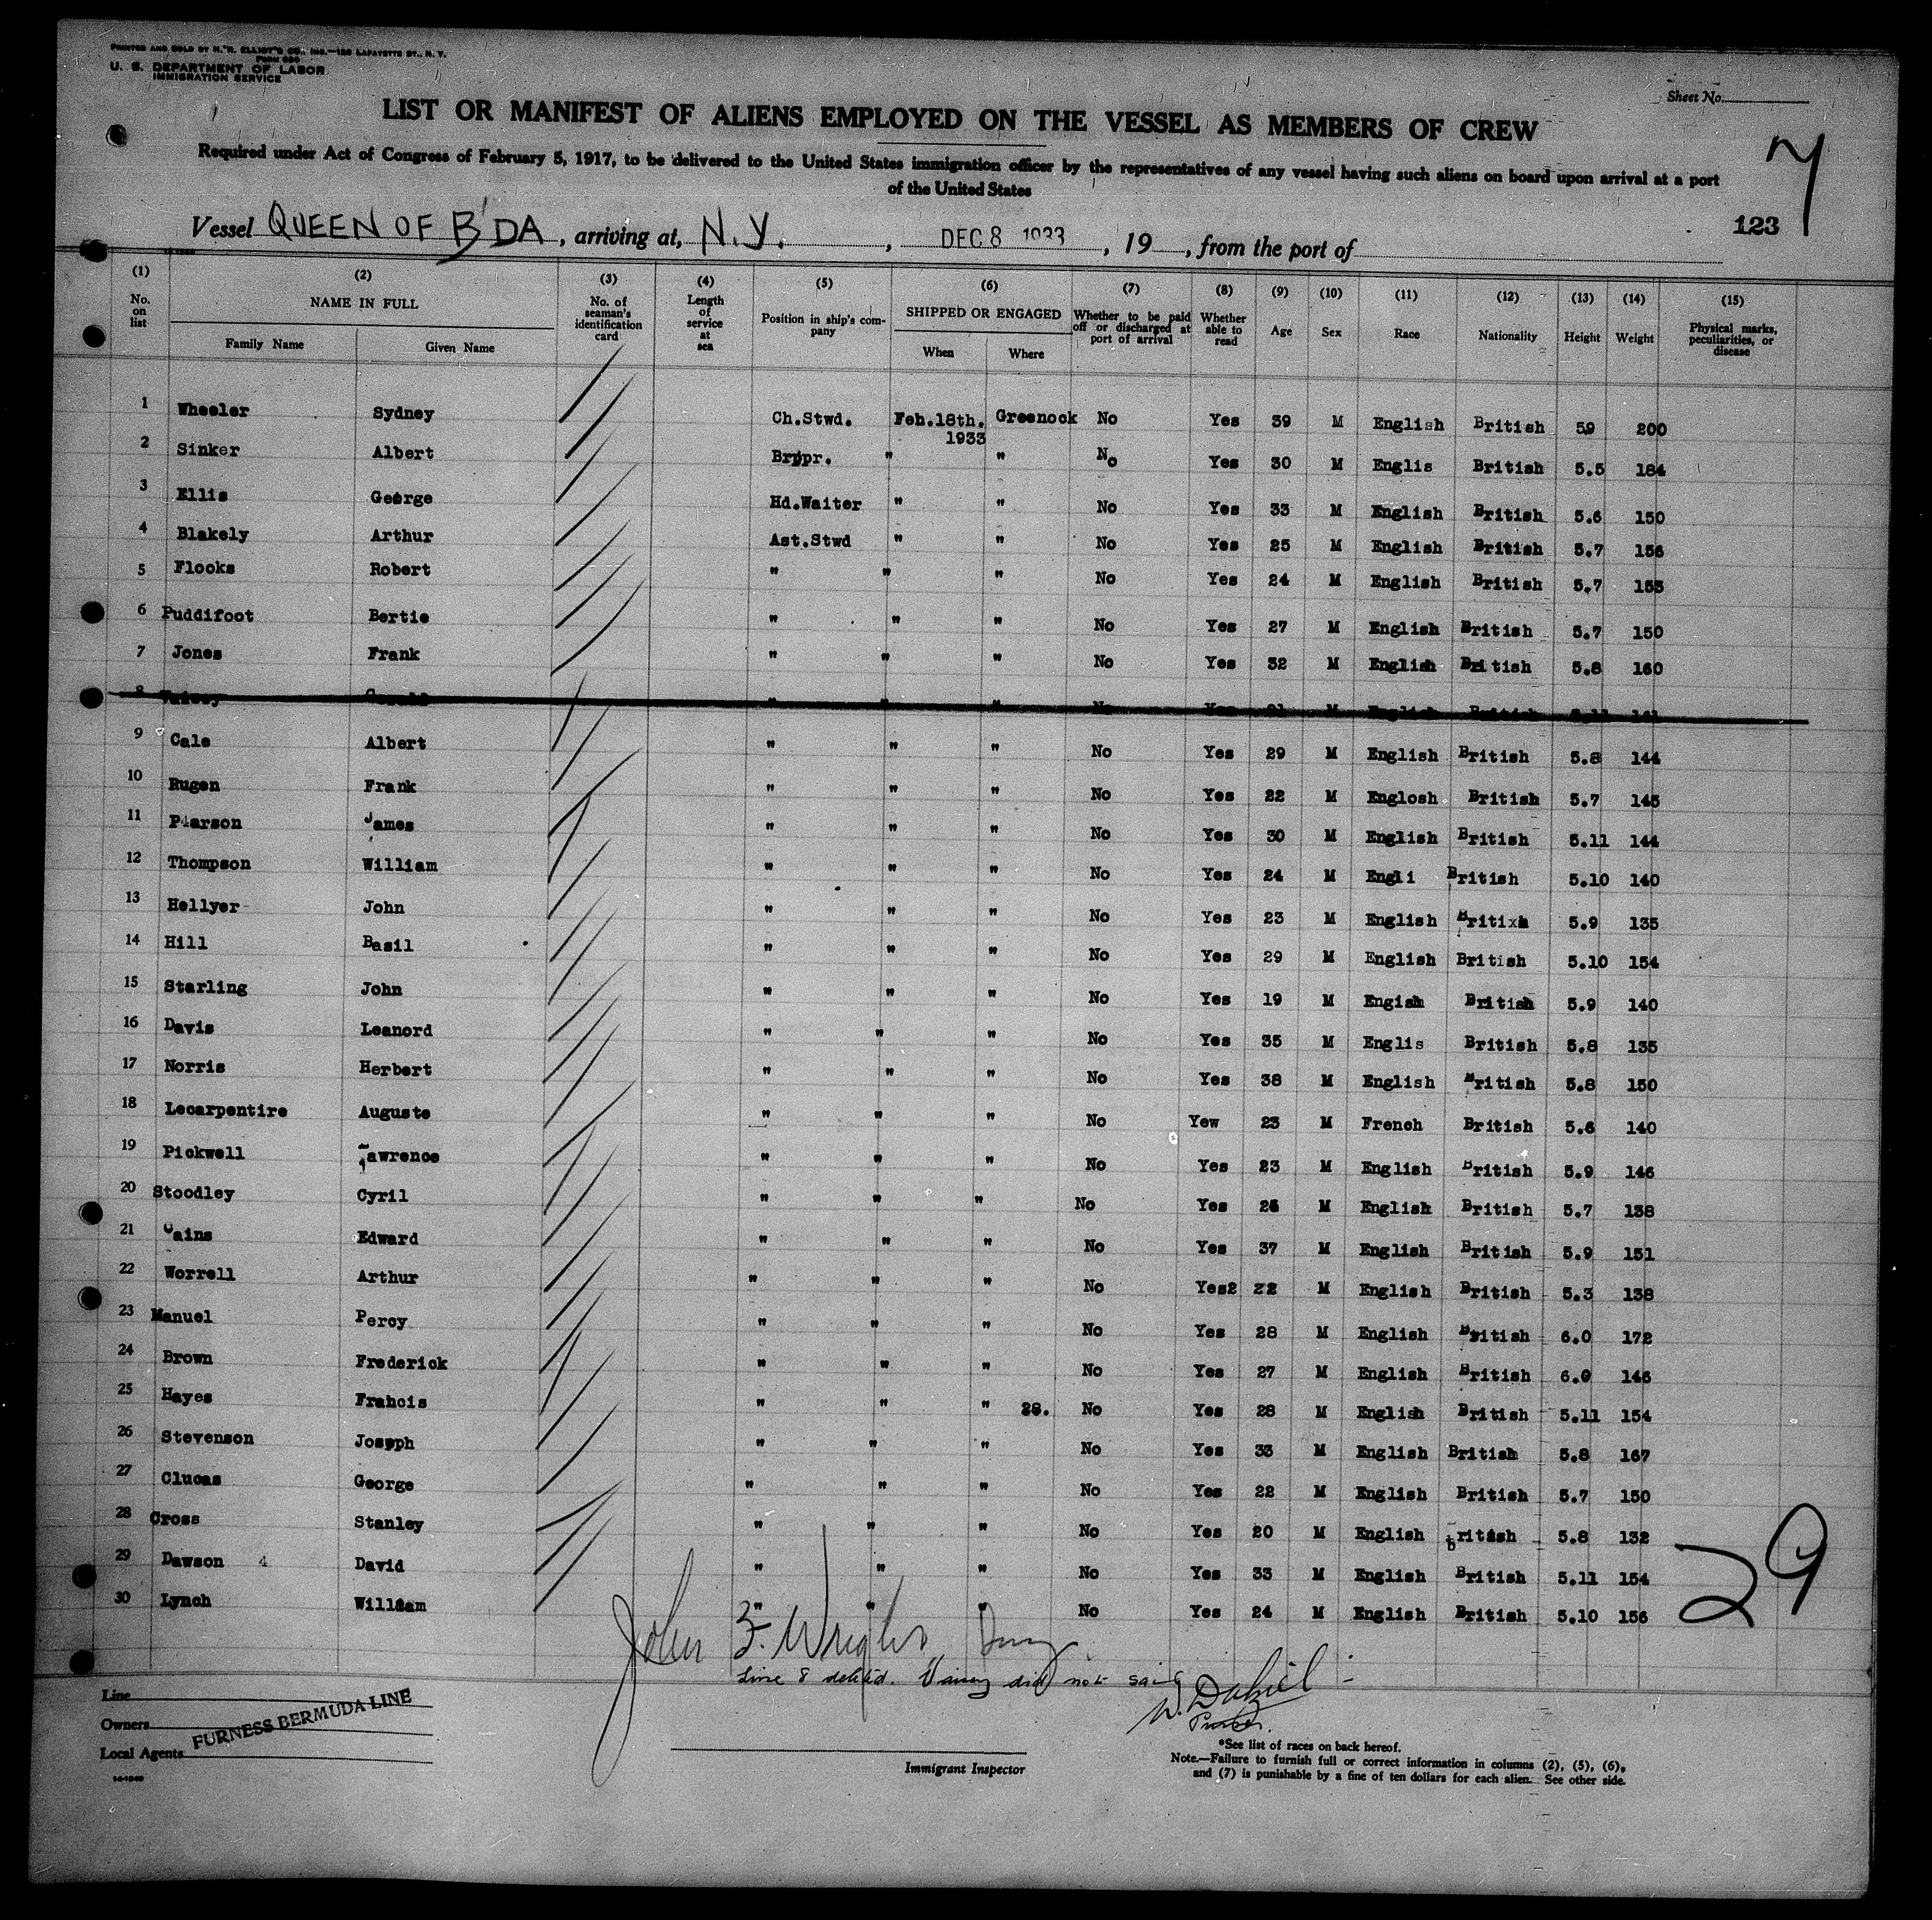 PRINTED AND SOLD BY H. R. ELLIOT'S CO., INC.—120 LAFAYETTE ST., N. Y.
Form 680
U. S. DEPARTMENT OF LABOR
IMMIGRATION SERVICE
Sheet No.
LIST OR MANIFEST OF ALIENS EMPLOYED ON THE VESSEL AS MEMBERS OF CREW
7
Required under Act of Congress of February 5, 1917, to be delivered to the United States immigration officer by the representatives of any vessel having such aliens on board upon arrival at a port
of the United States
123
Vessel QUEEN OF B'DA, arriving at, N.Y., DEC 8 1933, 19, from the port of
(1) (2) (3) (4) (5) (6) (7) (8) (9) (10) (11) (12) (13) (14) (15)
No. on list NAME IN FULL Family Name Given Name No. of seaman's identification card Length of service at sea Position in ship's company SHIPPED OR ENGAGED When Where Whether to be paid off or discharged at port of arrival Whether able to read Age Sex Race Nationality Height Weight Physical marks, peculiarities, or disease
1 Wheeler Sydney Ch.Stwd. Feh.18th. 1933 Greenock No Yes 39 M English British 59 200
2 Sinker Albert Brppr. " " No Yes 30 M Englis British 5.5 184
3 Ellis George Hd.Waiter " " No Yes 33 M English British 5.6 150
4 Blakely Arthur Ast.Stwd " " No Yes 25 M English British 5.7 156
5 Flooks Robert " " " No Yes 24 M English British 5.7 155
6 Puddifoot Bertie " " " No Yes 27 M English British 5.7 150
7 Jones Frank " " " No Yes 32 M English Bri tish 5.8 160
8 " " " No Yes 21 M English British
9 Cale Albert " " " No Yes 29 M English British 5.8 144
10 Rugen Frank " " " No Yes 22 M Englosh British 5.7 145
11 Pearson James " " " No Yes 30 M English British 5.11 144
12 Thompson William " " " No Yes 24 M Engli British 5.10 140
13 Hellyer John " " " No Yes 23 M English Britixh 5.9 135
14 Hill Basil " " " No Yes 29 M English British 5.10 154
15 Starling John " " " No Yes 19 M Engish British 5.9 140
16 Davis Leanord " " " No Yes 35 M Englis British 5.8 135
17 Norris Herbert " " " No Yes 38 M English British 5.8 150
18 Lecarpentire Auguste " " " No Yew 23 M French British 5.6 140
19 Pickwell Lawrence " " " No Yes 23 M English British 5.9 146
20 Stoodley Cyril " " " No Yes 26 M English British 5.7 138
21 Cains Edward " " " No Yes 37 M English British 5.9 151
22 Worrell Arthur " " " No Yes2 22 M English British 5.3 138
23 Manuel Percy " " " No Yes 28 M English British 6.0 172
24 Brown Frederick " " " No Yes 27 M English British 6.0 146
25 Hayes Frahcis " " " 28. No Yes 28 M English British 5.11 154
26 Stevenson Joseph " " " No Yes 33 M English British 5.8 167
27 Clucas George " " " No Yes 22 M English British 5.7 150
28 Cross Stanley " " " No Yes 20 M English british 5.8 132
29 Dawson 4 David " " " No Yes 33 M English British 5.11 154
30 Lynch William " " " No Yes 24 M English British 5.10 156
29
John Z. Wright
Line 8 deleted. Vaisey did not sail
Purser.
Line
Owners
Local Agents
FURNESS BERMUDA LINE
Immigrant Inspector
*See list of races on back hereof.
Note.—Failure to furnish full or correct information in columns (2), (5), (6),
and (7) is punishable by a fine of ten dollars for each alien. See other side.